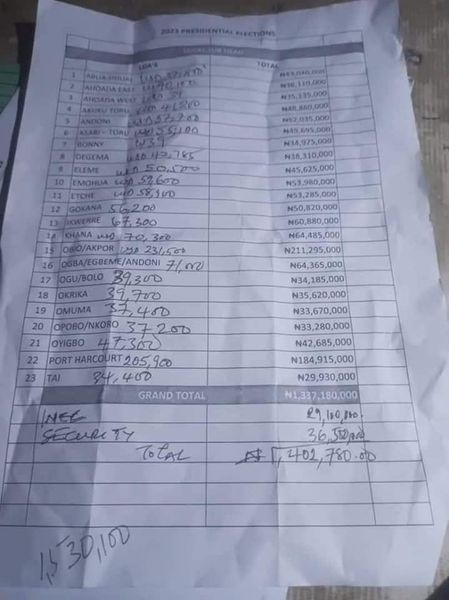 2023 PRESIDENTIAL ELECTIONS
LGA'S TOTAL
1 ABUA-ODUAL ₦43,040,000
2 AHOADA EAST ₦36,110,000
3 AHOADA WEST ₦35,135,000
4 AKUKU TORU ₦48,860,000
5 ANDONI ₦52,035,000
6 ASARI - TORU ₦49,695,000
7 BONNY ₦34,975,000
8 DEGEMA ₦38,310,000
9 ELEME USD 50,500 ₦45,625,000
10 EMOHUA USD 59,600 ₦53,980,000
11 ETCHE USD 58,900 ₦53,285,000
12 GOKANA 56,200 ₦50,820,000
13 IKWERRE 67,300 ₦60,880,000
14 KHANA USD 70,300 ₦64,485,000
15 OBIO/AKPOR USD 231,500 ₦211,295,000
16 OGBA/EGBEME/ANDONI 71,000 ₦64,365,000
17 OGU/BOLO 39,300 ₦34,185,000
18 OKRIKA 39,700 ₦35,620,000
19 OMUMA 37,400 ₦33,670,000
20 OPOBO/NKORO 37,200 ₦33,280,000
21 OYIGBO 47,300 ₦42,685,000
22 PORT HARCOURT 205,900 ₦184,915,000
23 TAI 34,400 ₦29,930,000
GRAND TOTAL ₦1,337,180,000
INEC 29,100,000
SECURITY 36,500,000
TOTAL ₦1,402,780.00
1,530,100